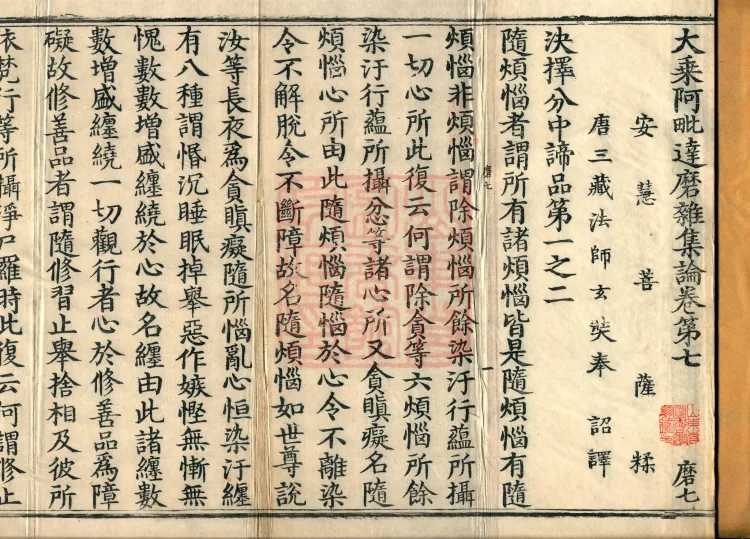 大乘阿毗達磨雜集論卷第七 磨七
安慧菩薩糅
唐三藏法師玄奘奉 詔譯
決擇分中諦品第一之二
隨煩惱者謂所有諸煩惱皆是隨煩惱有隨
煩惱非煩惱謂除煩惱所餘染汙行蘊所攝
一切心所此復云何謂除貪等六煩惱所餘
染汙行蘊所攝忿等諸心所又貪瞋癡名隨
煩惱心所由此隨煩惱隨惱於心令不離染
令不解脫令不斷障故名隨煩惱如世尊說
汝等長夜為貪瞋癡隨所惱亂心恒染汙纏
有八種謂惛沉睡眠掉舉惡作嫉慳無慚無
愧數數增盛纏繞於心故名纏由此諸纏數
數增盛纏繞一切觀行者心於修善品為障
礙故修善品者謂隨修習止舉捨相及彼所
依梵行等所攝淨尸羅時此復云何謂修止